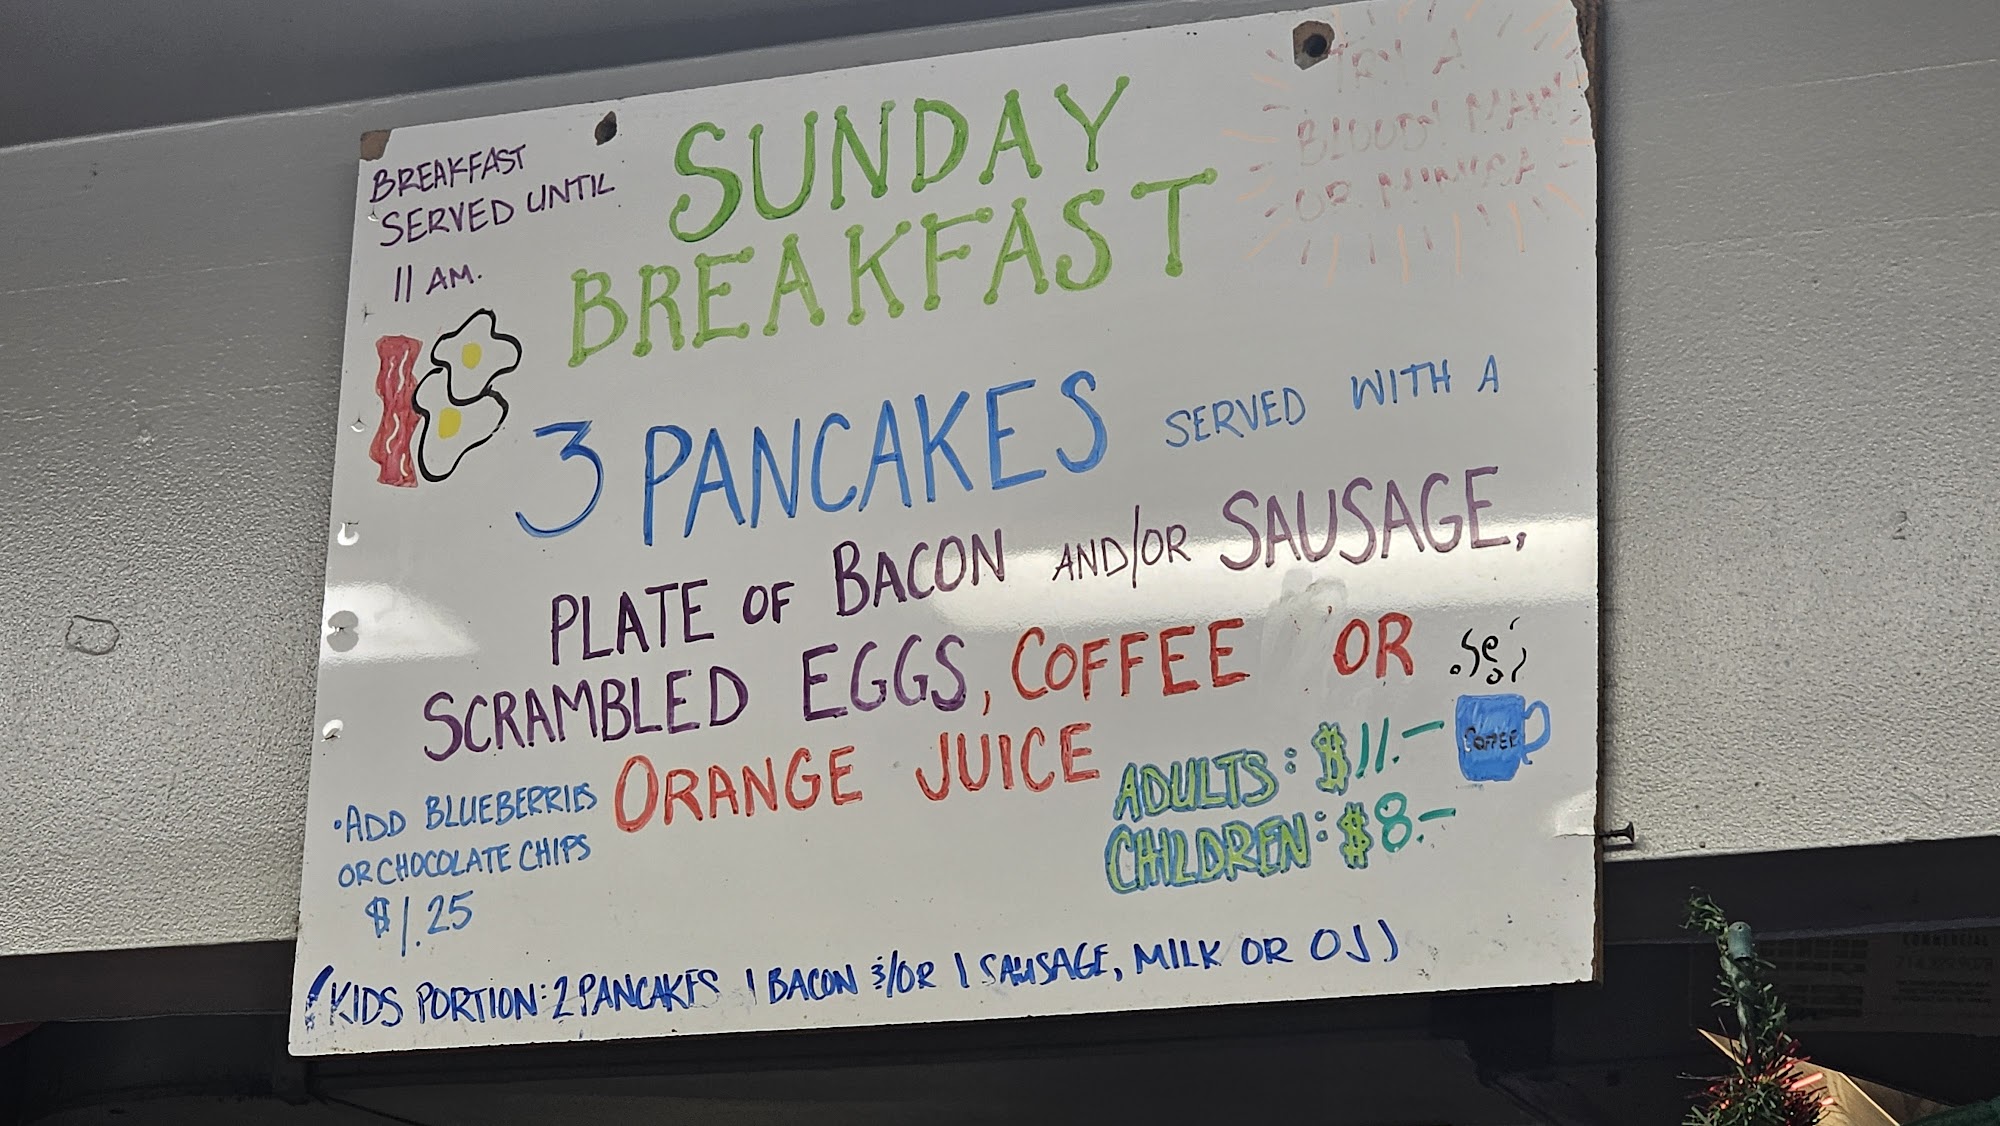 BREAKFAST
SERVED UNTIL
11 AM.
SUNDAY
BREAKFAST
TRY A
BLOODY MARY
OR MIMOSA
3 PANCAKES SERVED WITH A
PLATE OF BACON AND/OR SAUSAGE,
SCRAMBLED EGGS, COFFEE OR
ORANGE JUICE
COFFEE
ADULTS: $11.-
CHILDREN: $8.-
•ADD BLUEBERRIES
OR CHOCOLATE CHIPS
$1.25
(KIDS PORTION: 2 PANCAKES 1 BACON &/OR 1 SAUSAGE, MILK OR OJ)